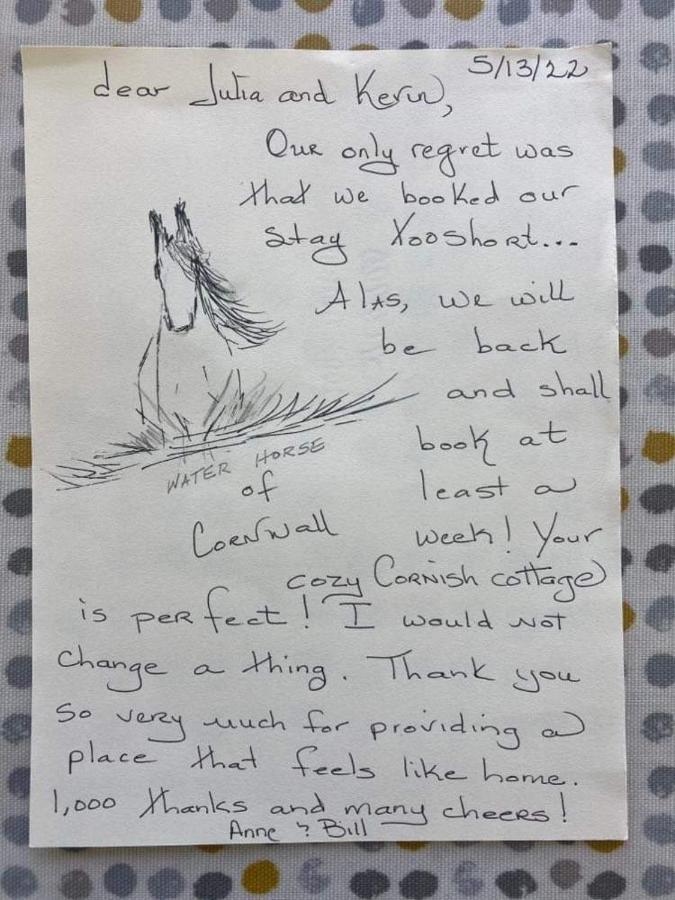 5/13/22
dear Julia and Kevin,
Our only regret was
that we booked our
stay too short...
Alas, we will
be back
and shall
book at
least a
week! Your
WATER HORSE
of
Cornwall
cozy Cornish cottage
is perfect! I would not
change a thing. Thank you
so very much for providing a
place that feels like home.
1,000 thanks and many cheers!
Anne & Bill